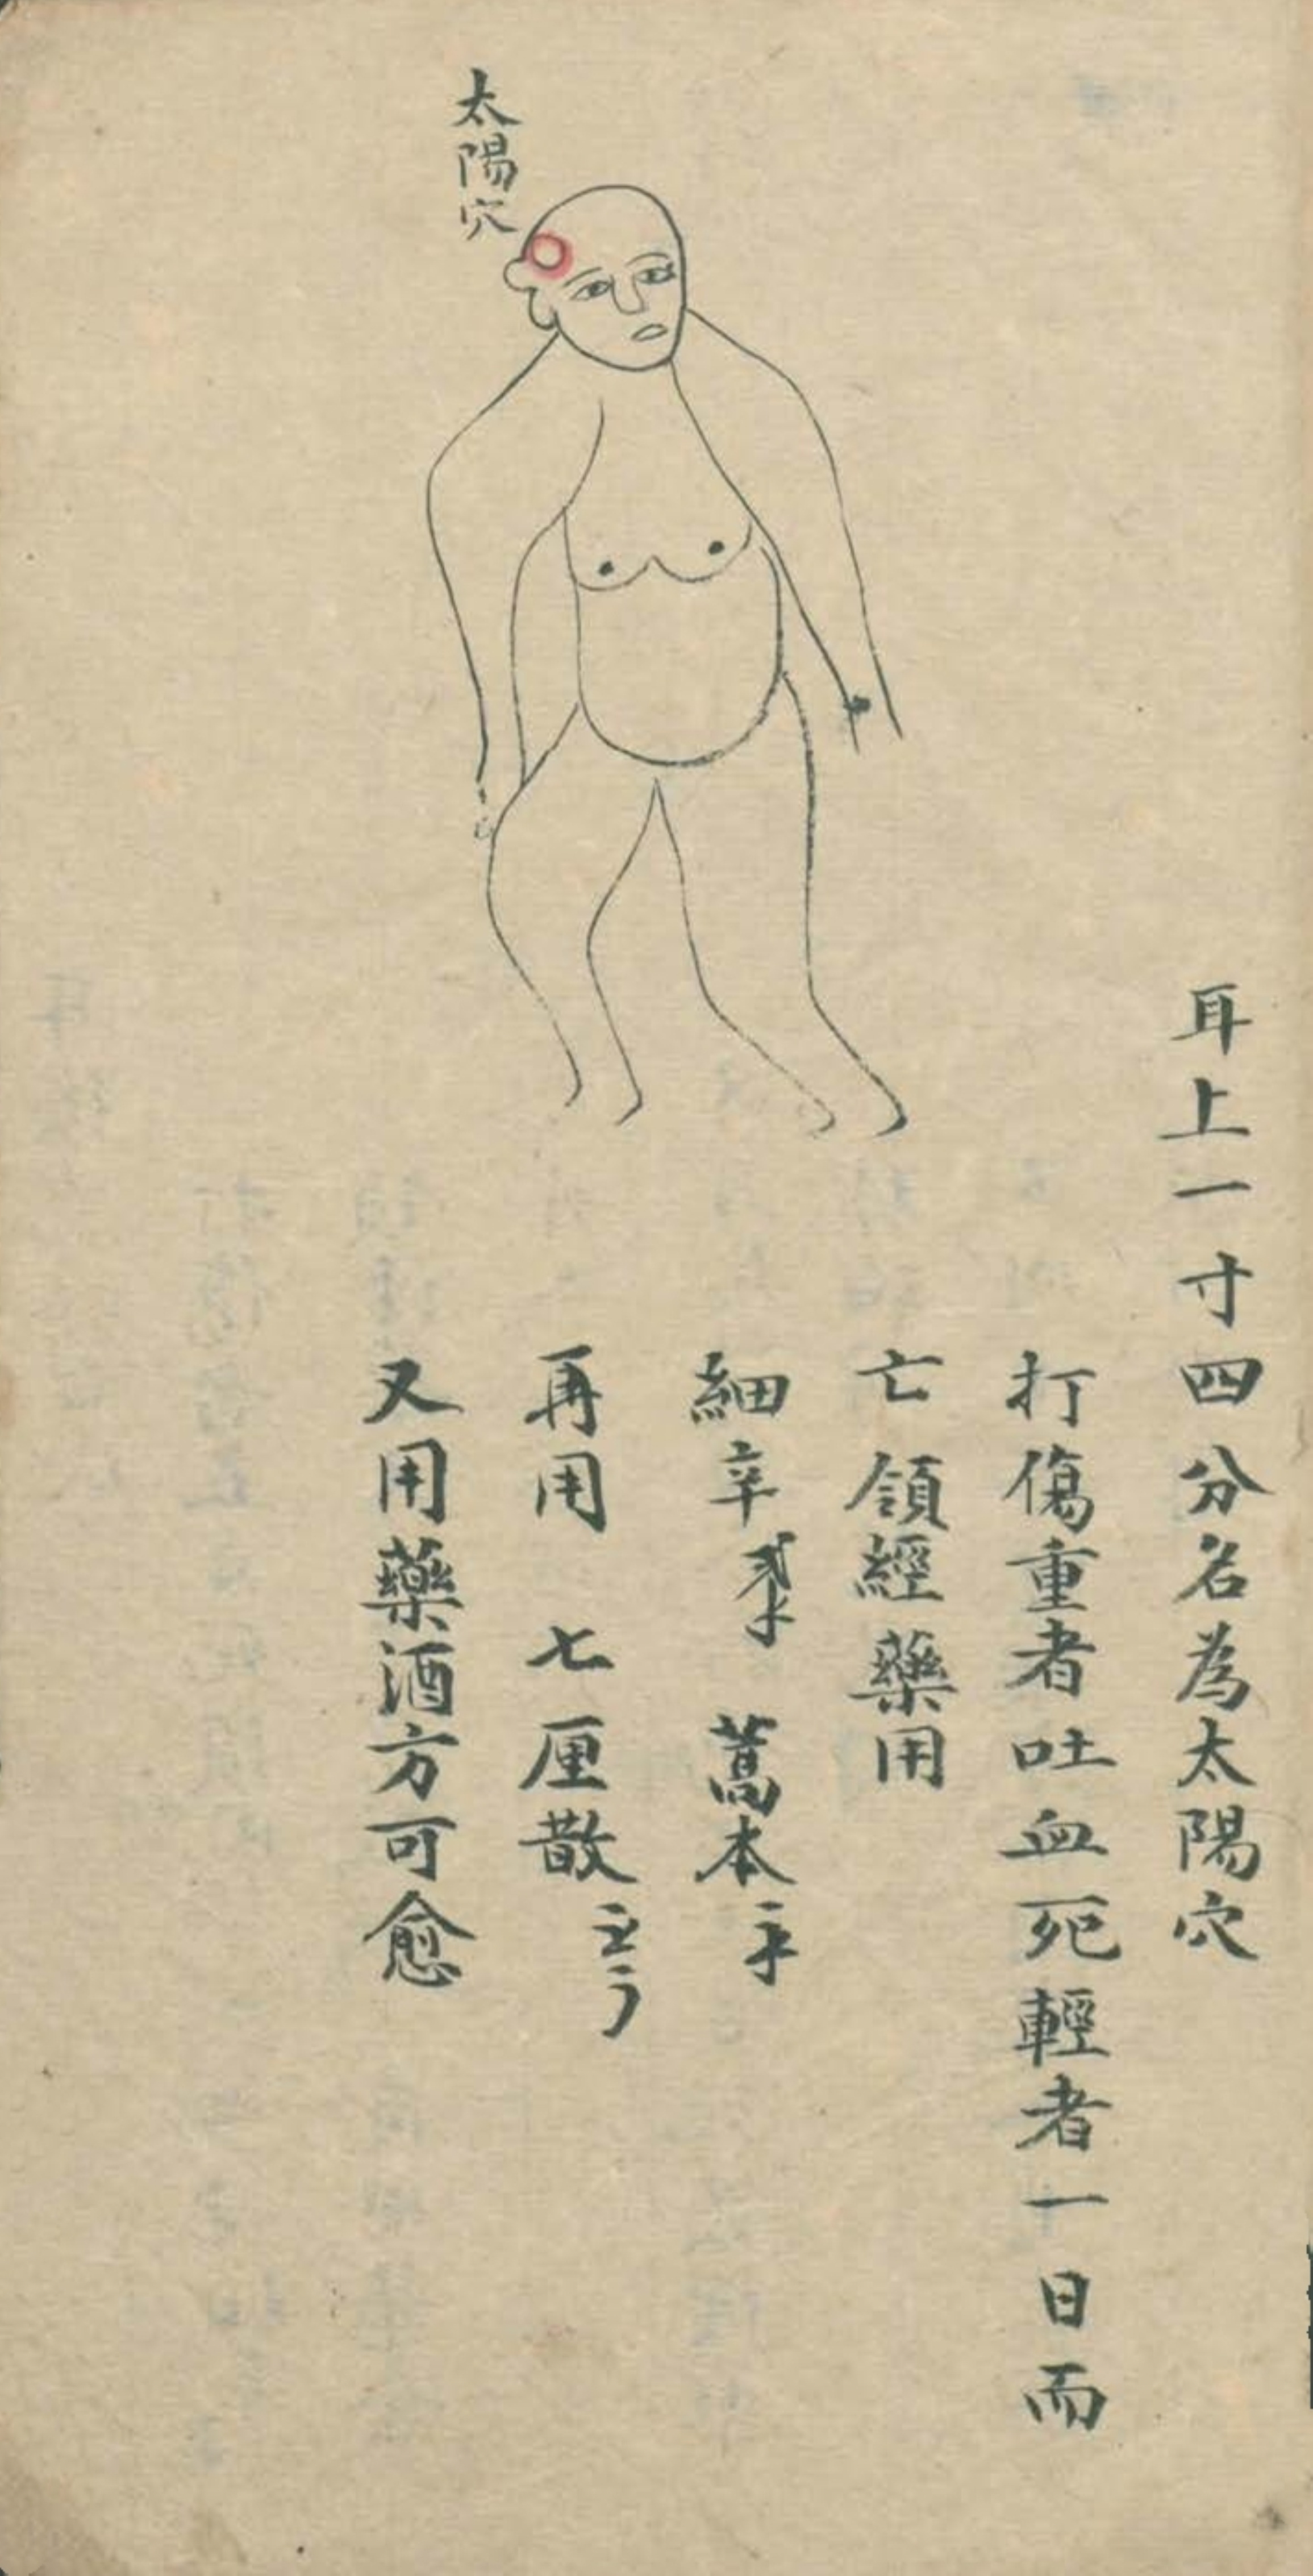 太陽穴
耳上一寸四分名為太陽穴
打傷重者吐血死輕者一日而
亡領經藥用
細辛 蒿本
再用 七厘散
又用藥酒方可愈